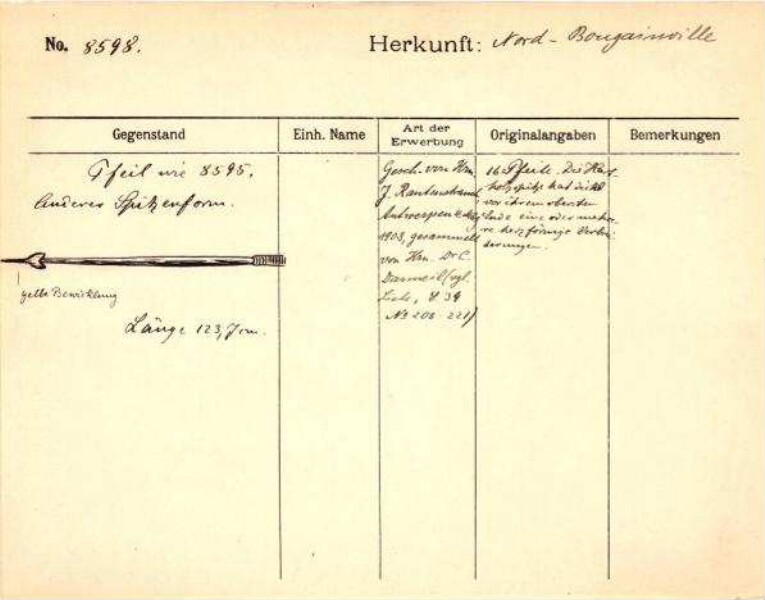 No. 8598.
Herkunft: Nord-Bougainville
Gegenstand
Einh. Name
Art der
Erwerbung
Originalangaben
Bemerkungen
Pfeil wie 8595.
Anderes Spitzenform.
gelbe Bewicklung
Länge 123,7cm.
Gesch. von Hrn.
J. Rautenstrauch
Antwerpen
1903, gesammelt
von Hrn. Dr C.
(vgl.
Liste, S 34
No 208-221)
16 Pfeile. Die Hart-
holzspitze hat dicht
vor ihrem obersten
Ende eine oder mehre-
re herzförmige Verbrei-
terungen.